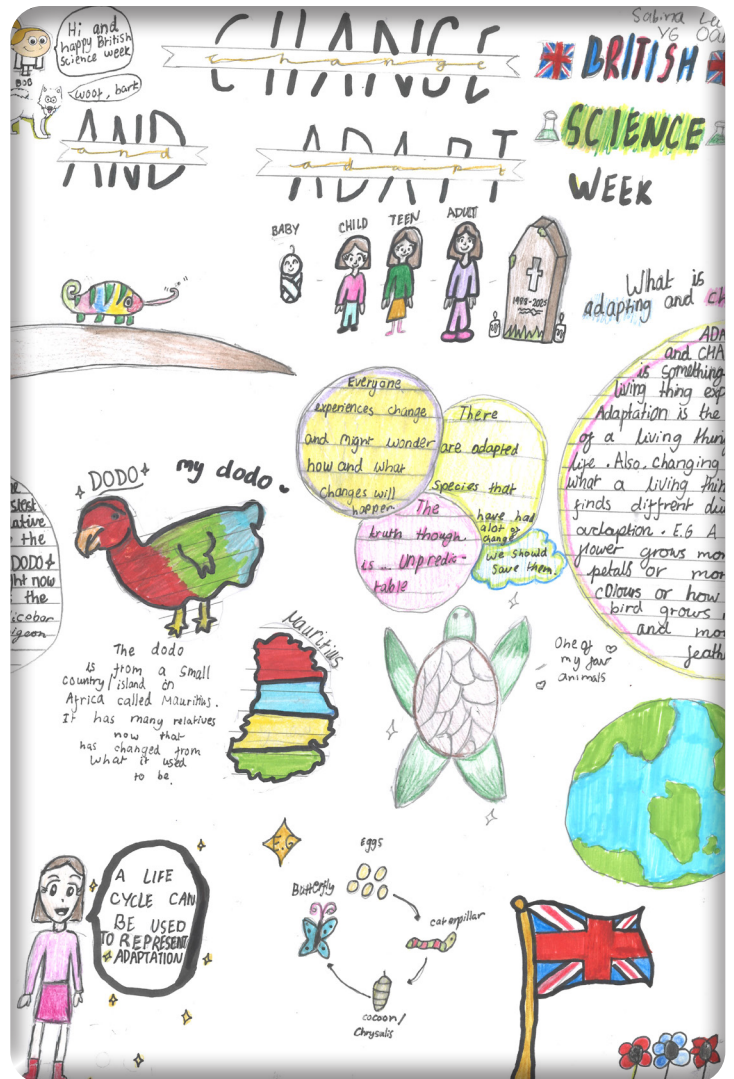 Hi and
happy British
science week
BOB
woof, bark
CHANGE
change
AND
and
ADAPT
adapt
Sabina
BRITISH
SCIENCE
WEEK
BABY
CHILD
TEEN
ADULT
What is
adapting and
ADA
and CHA
is something
living thing exp
Adaptation is the
of a living thing
life. Also, changing
what a living thin
finds diffrent du
E.G A
flower grows mor
petals or mor
colours or how
bird grows
and mor
feath
Everyone
experiences change
and might wonder
how and what
changes will
happen
There
are adapted
species that
have had
alot of
change
The
truth though
is unpredic-
table
we should
save them.
DODO
my dodo
ative
the
DODO
ht now
the
icobar
igeon
The dodo
is from a small
country/island on
Africa called Mauritius.
It has many relatives
now that
has changed from
what it used
to be.
MAURITIUS
One of
my fav
animals
A LIFE
CYCLE CAN
BE USED
TO REPRESENT
ADAPTATION
E.G
Eggs
Butterfly
caterpillar
cocoon/
Chrysalis